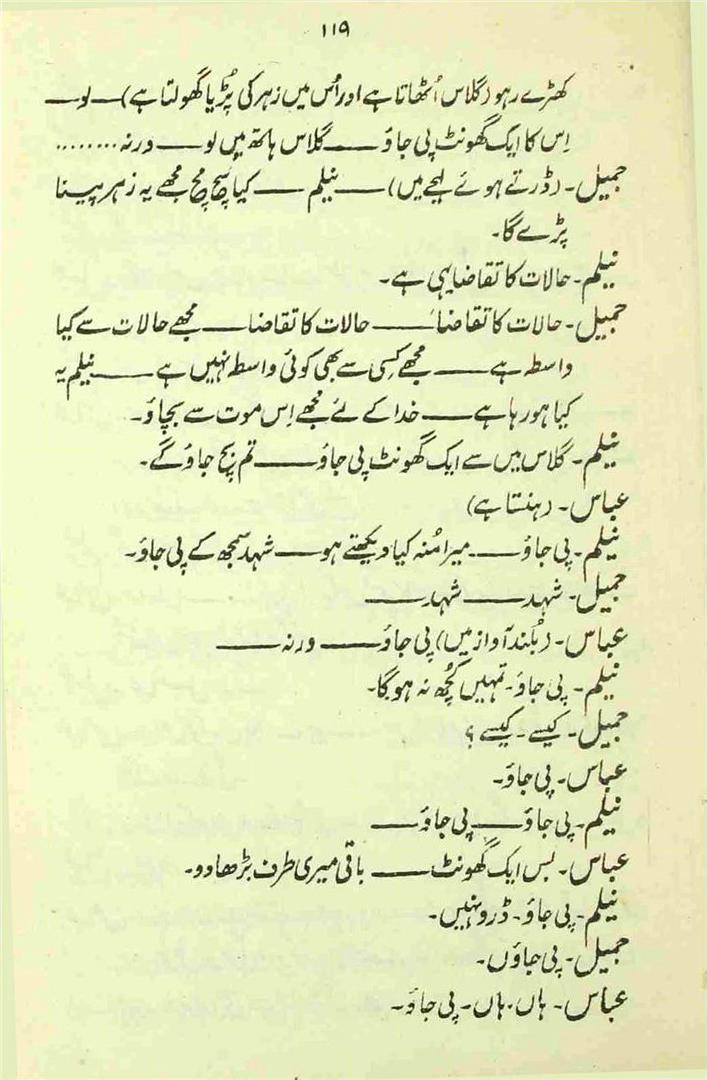 ۱۱۹
کھڑے رہو (گلاس اُٹھاتا ہے اور اُس میں زہر کی پُڑیا گھولتا ہے) — لو —
اِس کا ایک گھونٹ پی جاؤ — گلاس ہاتھ میں لو — ورنہ ........
جمیل۔ (ڈرتے ہوئے لہجے میں) — نیلم — کیا سچ مچ مجھے یہ زہر پینا
پڑے گا۔
نیلم۔ حالات کا تقاضا یہی ہے۔
جمیل۔ حالات کا تقاضا — حالات کا تقاضا — مجھے حالات سے کیا
واسطہ ہے — مجھے کسی سے بھی کوئی واسطہ نہیں ہے — نیلم یہ
کیا ہو رہا ہے — خدا کے لئے مجھے اِس موت سے بچاؤ۔
نیلم۔ گلاس میں سے ایک گھونٹ پی جاؤ — تم بچ جاؤ گے۔
عباس۔ (ہنستا ہے)
نیلم۔ پی جاؤ — میرا مُنہ کیا دیکھتے ہو — شہد سمجھ کے پی جاؤ۔
جمیل۔ شہد — شہد —
عباس۔ (بلند آواز میں) پی جاؤ — ورنہ —
نیلم۔ پی جاؤ۔ تمہیں کچھ نہ ہو گا۔
جمیل۔ کیسے۔ کیسے؟
عباس۔ پی جاؤ۔
نیلم۔ پی جاؤ — پی جاؤ —
عباس۔ بس ایک گھونٹ — باقی میری طرف بڑھا دو۔
نیلم۔ پی جاؤ۔ ڈرو نہیں۔
جمیل۔ پی جاؤں۔
عباس۔ ہاں۔ ہاں۔ پی جاؤ۔